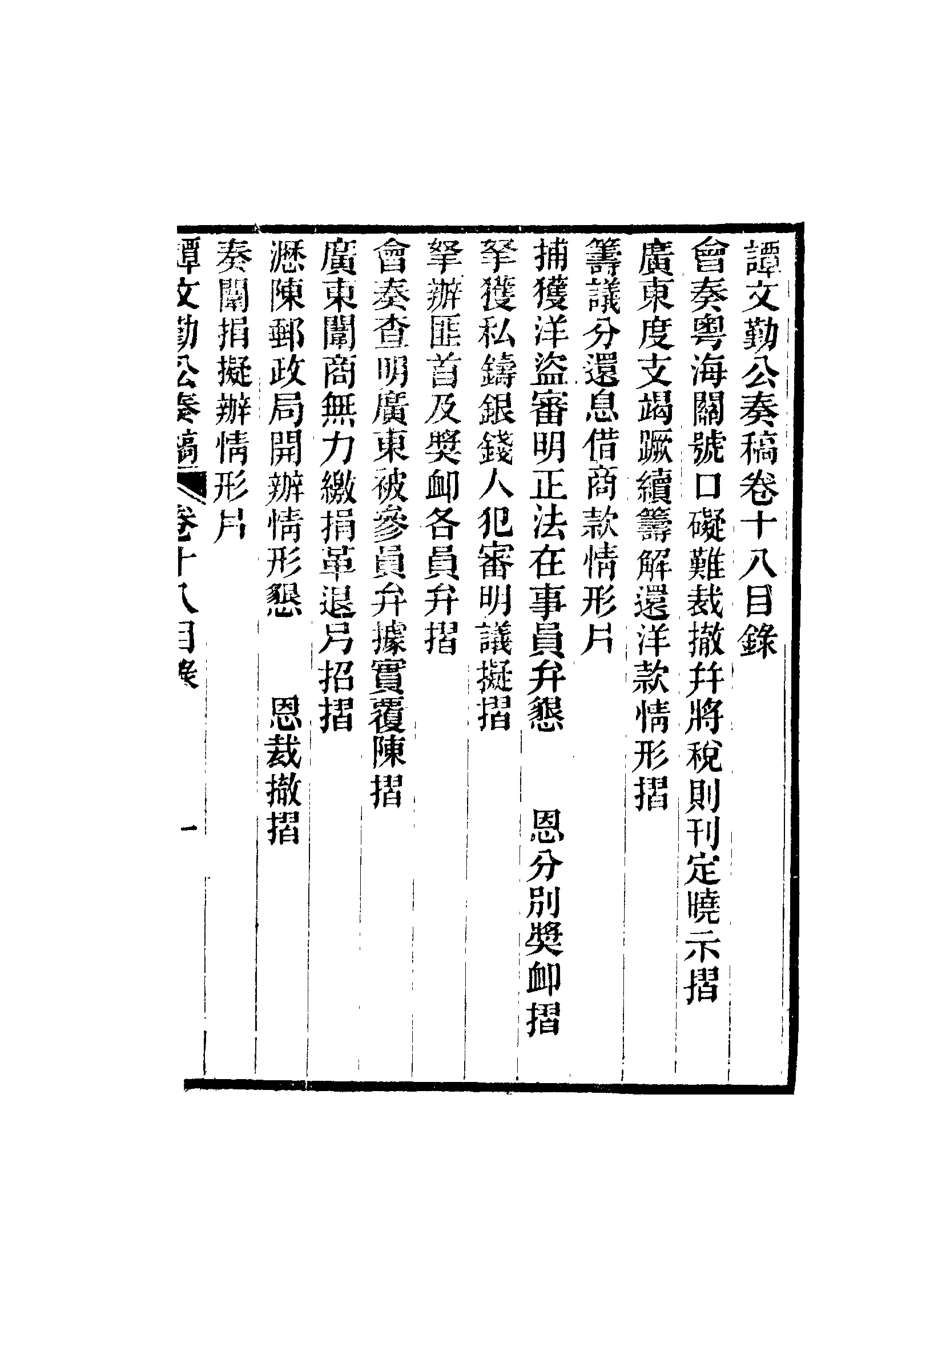 譚文勤公奏稿卷十八目錄
會奏粵海關號口礙難裁撤幷將稅則刊定曉示摺
廣東度支竭蹶續籌解還洋款情形摺
籌議分還息借商款情形片
捕獲洋盜審明正法在事員弁懇 恩分別獎卹摺
拏獲私鑄銀錢人犯審明議擬摺
拏辦匪首及獎卹各員弁摺
會奏查明廣東被參員弁據實覆陳摺
廣東闈商無力繳捐革退另招摺
瀝陳郵政局開辦情形懇 恩裁撤摺
奏闈捐擬辦情形片
譚文勤公奏稿 卷十八目錄 一